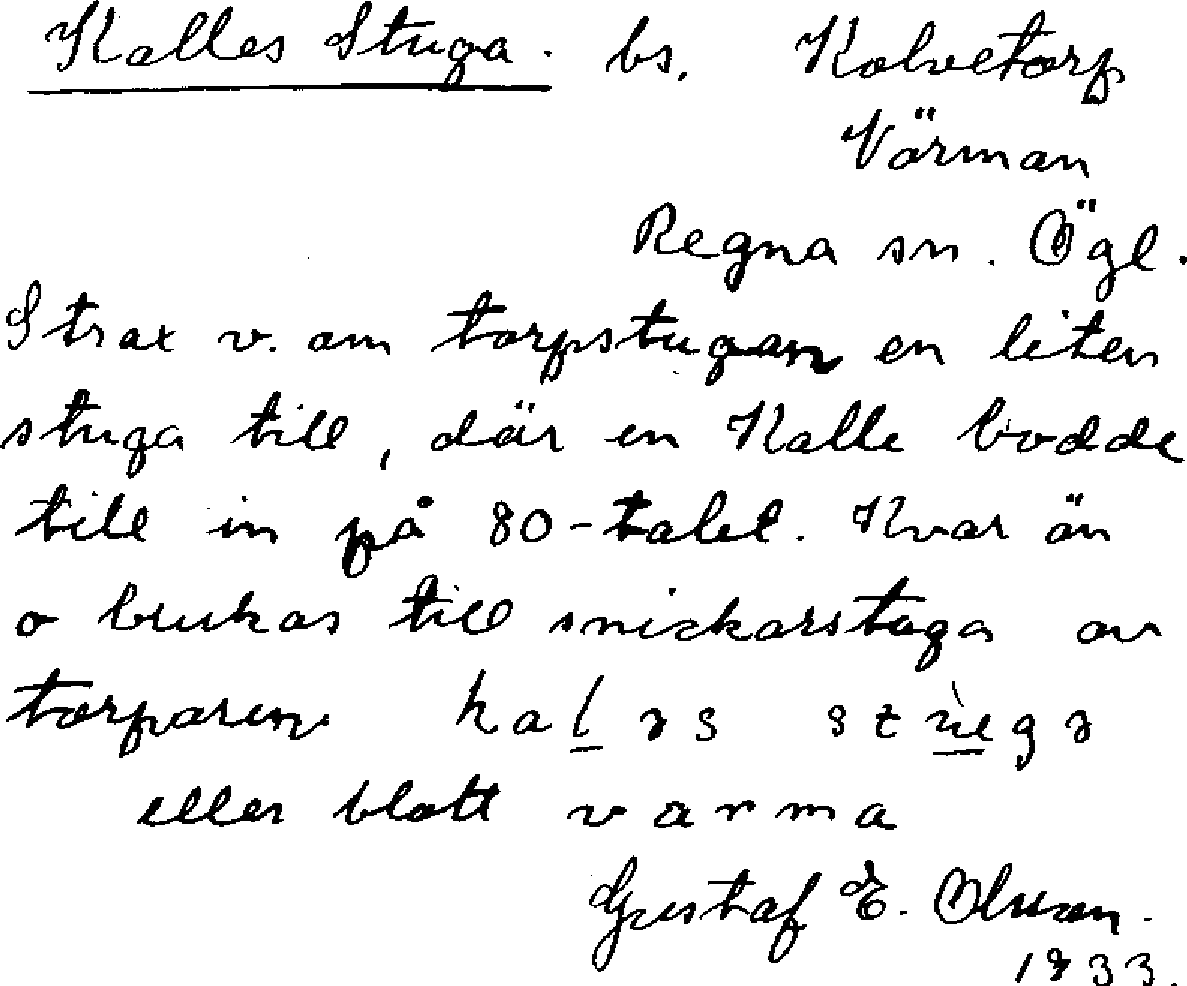 Kalles Stuga. bs. Kalvetorp
Värman
Regna sn. Ögl.
Strax v. om torpstugan en liten
stuga till, där en Kalle bodde
till in på 80-talet. Kvar än
o brukas till snickarstuga av
torparen
eller blott varma
Gustaf E. Olsson.
1933.